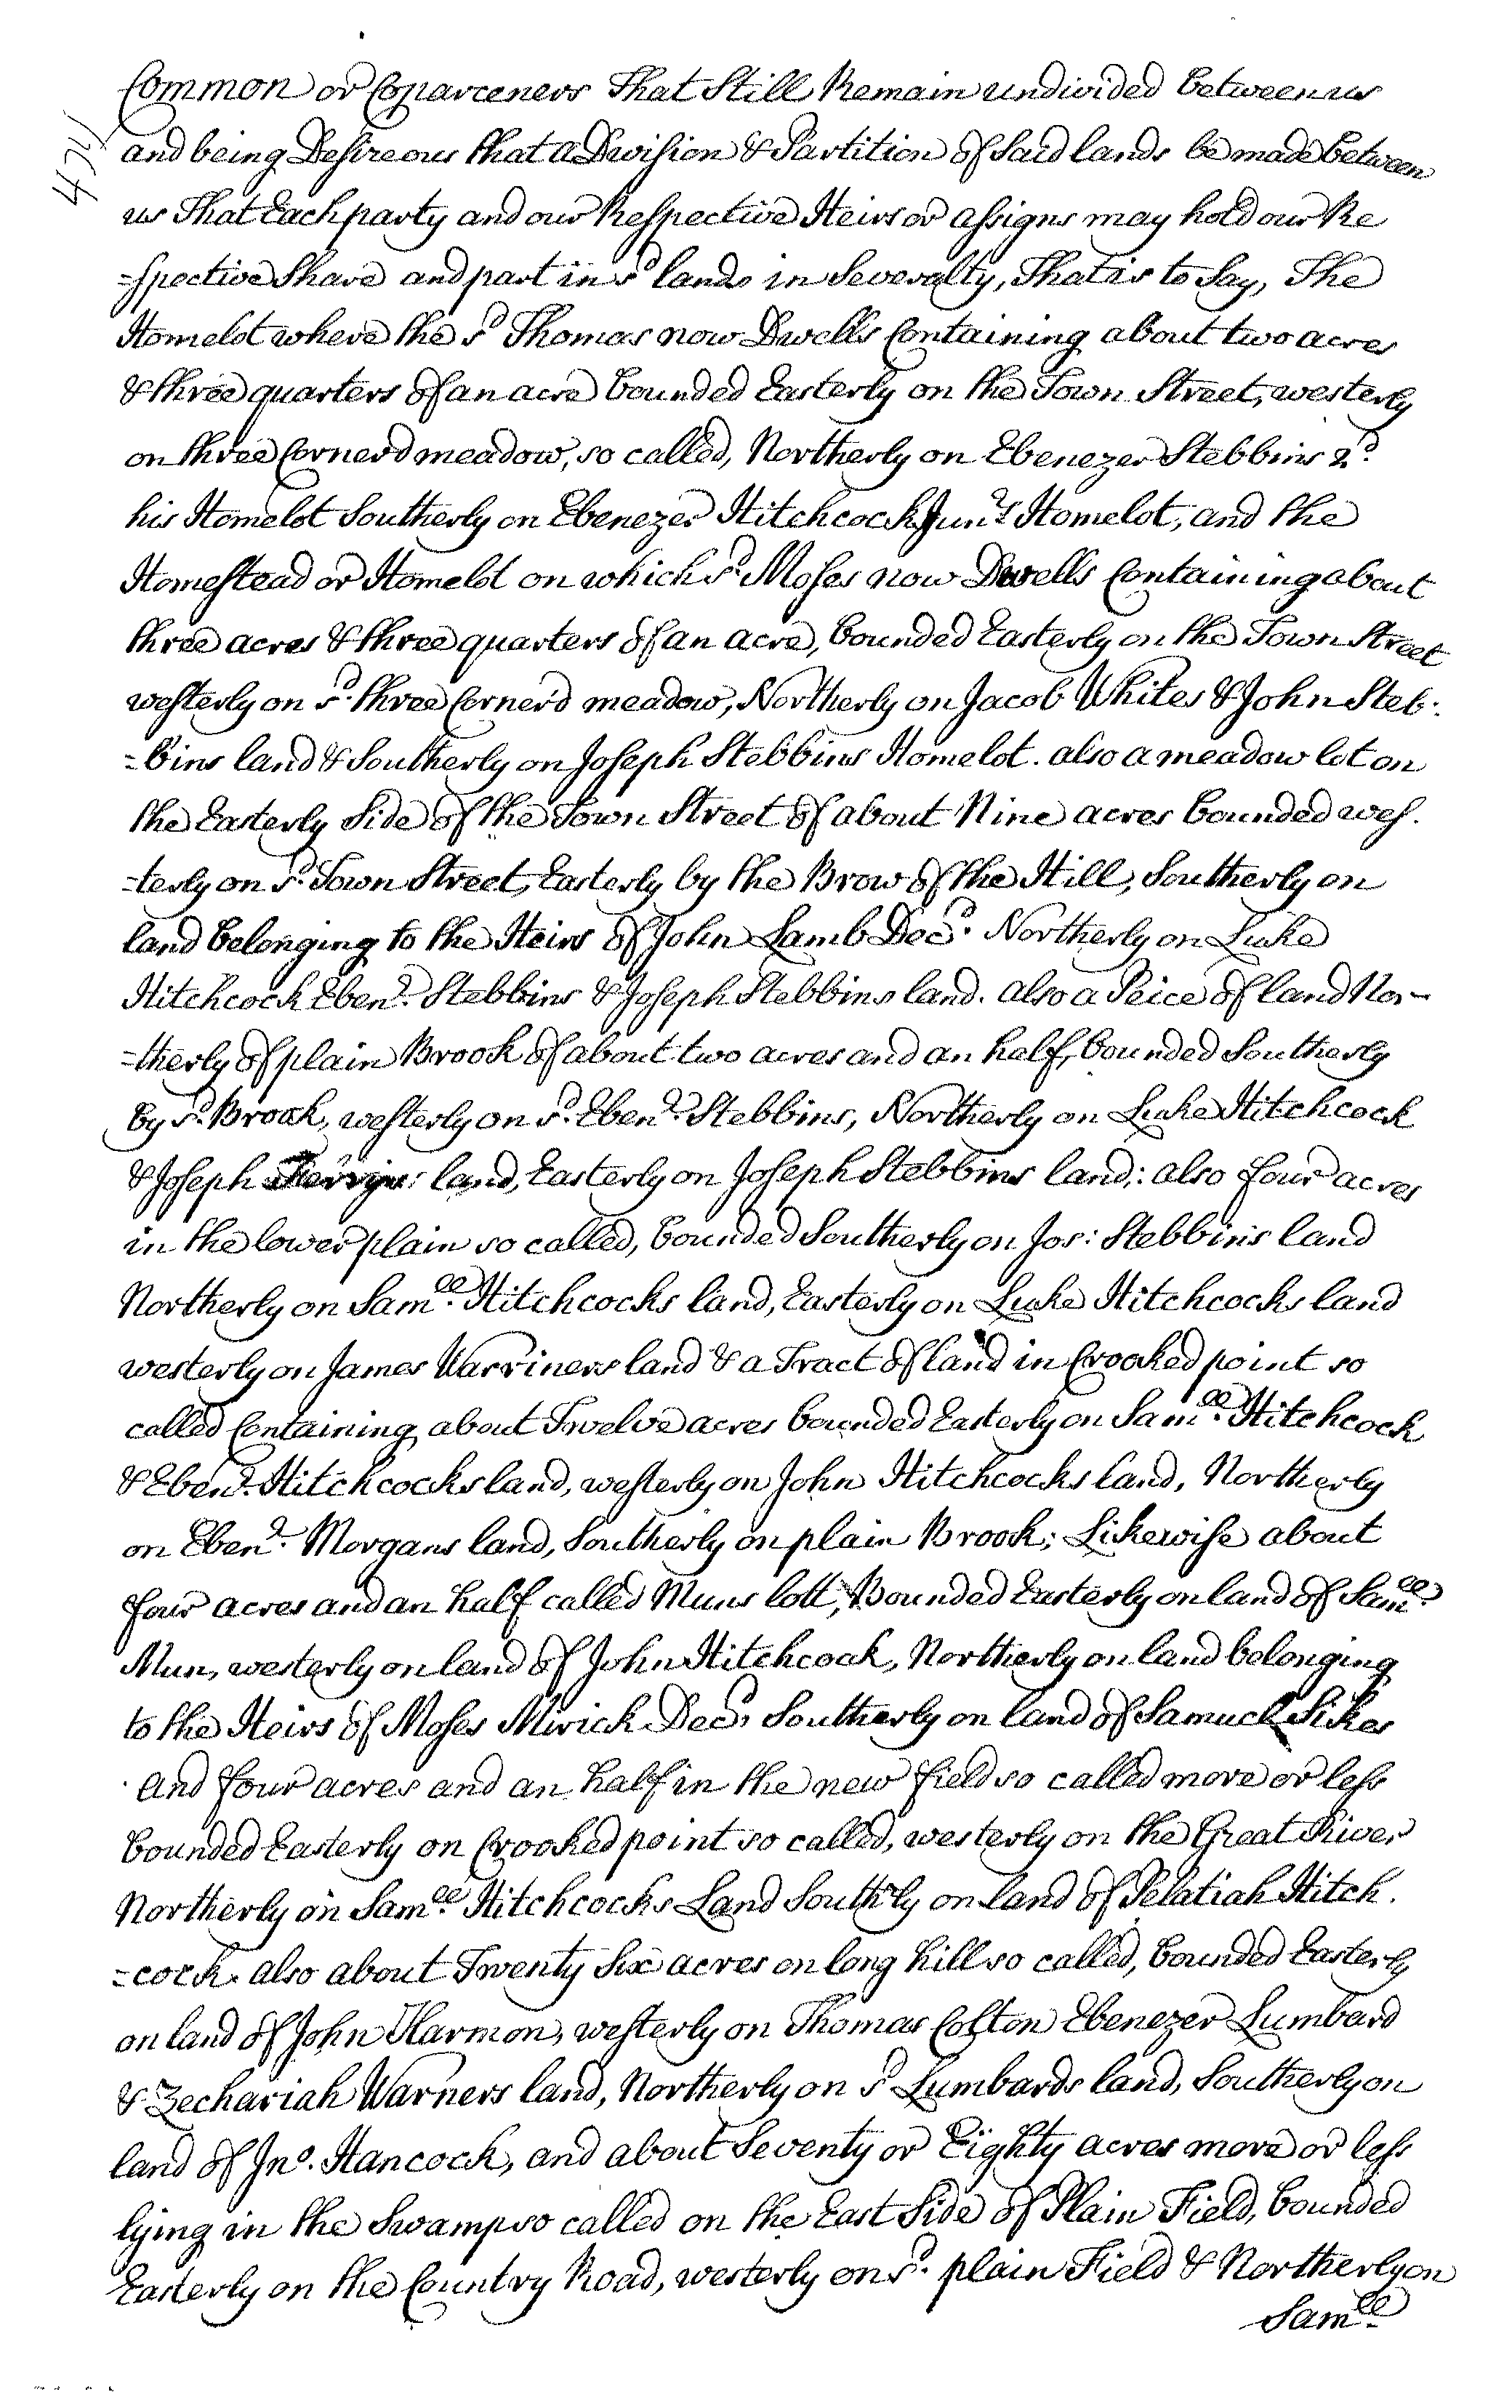 Common or Coparceners That Still Remain undivided between us
and being Desireous that a Division & Partition of Said lands be made between
us That Each party and our Respective Heirs or assigns may hold our Re
=spective Share and part in sd lands in Severalty, That is to Say, The
Homelot where the sd Thomas now Dwells Containing about two acres
& three quarters of an acre bounded Easterly on the Town Street, westerly
on three Cornerd meadow, so called, Northerly on Ebenezer Stebbins 2d.
his Homelot Southerly on Ebenezer Hitchcock Junrs Homelot, and the
Homestead or Homelot on which sd. Moses now Dwells Containing about
three acres & three quarters of an acre, bounded Easterly on the Town Street
westerly on sd. three Corner'd meadow, Northerly on Jacob Whites & John Steb:
=bins land & Southerly on Joseph Stebbins Homelot. also a meadow lot on
the Easterly Side of the Town Street of about Nine acres bounded wes.
=terly on sd. Town Street, Easterly by the Brow of the Hill, Southerly on
land belonging to the Heirs of John Lamb Decd. Northerly on Luke
Hitchcock Ebenr. Stebbins & Joseph Stebbins land. also a Peice of land Nor-
=therly of plain Brook of about two acres and an half, bounded Southerly
by sd. Brook, westerly on sd. Ebenr. Stebbins, Northerly on Luke Hitchcock
& Joseph land, Easterly on Joseph Stebbins land,: also four acres
in the lower plain so called, bounded Southerly on Jos: Stebbins land
Northerly on Samll. Hitchcocks land, Easterly on Luke Hitchcocks land
westerly on James Warriners land & a Tract of land in Crooked point so
called Containing about Twelve acres bounded Easterly on Samll. Hitchcock
& Ebenr. Hitchcocks land, westerly on John Hitchcocks land, Northerly
on Ebenr. Morgans land, Southerly on plain Brook; Likewise about
four acres and an half called Muns lott, Bounded Easterly on land of Samll.
Mun, westerly on land of John Hitchcock, Northerly on land belonging
to the Heirs of Moses Mirick Decd. Southerly on land of Samuel Sikes
And four acres and an half in the new field so called more or less
bounded Easterly on Crooked point so called, westerly on the Great River
Northerly on Samll. Hitchcocks Land Southrly on land of Pelatiah Hitch.
=cock. also about Twenty Six acres on long hill so called, bounded Easterly
on land of John Harmon, westerly on Thomas Colton Ebenezer Lumbard
& Zechariah Warners land, Northerly on sd Lumbards land, Southerly on
land of Jno. Hancock, and about Seventy or Eighty acres more or less
lying in the Swamp so called on the East Side of Plain Field, bounded
Easterly on the Country Road, westerly on sd. plain Field & Northerly on
Samll